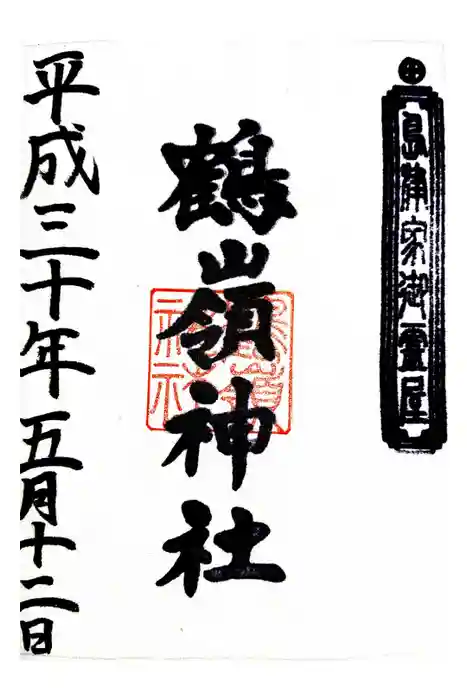 島津家御霊屋
鶴嶺神社
鶴嶺神社
平成三十年五月十二日